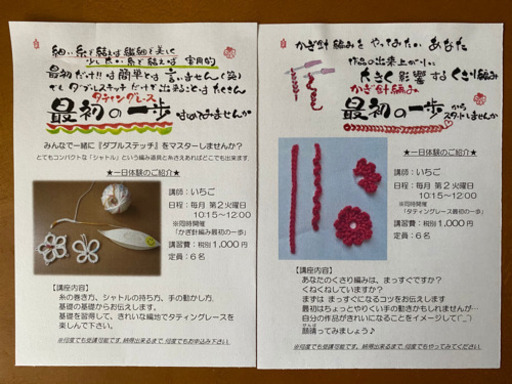 細い糸で編えば繊細で美しく
少し太い糸で編えば 実用的
最初だけ!!は簡単とは言いません(笑)
でも ダブルステッチだけで出来ることはたくさん
タティングレース
最初の一歩 はじめてみませんか
みんなで一緒に『ダブルステッチ』をマスターしませんか?
とてもコンパクトな「シャトル」という編み道具と糸さえあればどこでも出来ます.
★一日体験のご紹介★
講師:いちご
日程:毎月 第2火曜日
10:15~12:00
※同時開催
「かぎ針編み最初の一歩」
講習費:税別 1,000 円
定員:6 名
【講座内容】
糸の巻き方、シャトルの持ち方、手の動かし方.
基礎の基礎からお伝えします.
基礎を習得して、きれいな編地でタティングレースを
楽しんで下さい.
※何度でも受講可能です. 納得出来るまで、何度でもお申込み下さい!
かぎ針編みをやってみたい あなた
作品の出来上がりに
大きく影響するくさり編み
かぎ針編み
最初の一歩 から
スタートしませんか
★一日体験のご紹介★
講師:いちご
日程:毎月 第2火曜日
10:15~12:00
※同時開催
「タティングレース最初の一歩」
講習費:税別 1,000 円
定員:6 名
【講座内容】
あなたのくさり編みは、まっすぐですか?
くねくねしていますか?
まずは まっすぐになるコツをお伝えします
最初はちょっとやりにくい手の動きかもしれませんが…
自分の作品がきれいになることをイメージして(^_^)
頑張ってみましょう♪
※何度でも受講可能です. 納得出来るまで、何度でもやってみてください!